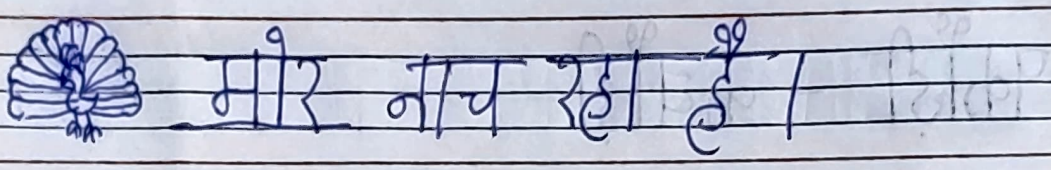 मोर नाच रहा है।